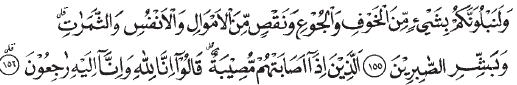 وَلَنَبْلُوَنَّكُمْ بِشَيْءٍ مِّنَ الْخَوْفِ وَالْجُوْعِ وَنَقْصٍ مِّنَ الْاَمْوَالِ وَالْاَنْفُسِ وَالثَّمَرٰتِۗ
وَبَشِّرِ الصّٰبِرِيْنَ ۝١٥٥ الَّذِيْنَ اِذَآ اَصَابَتْهُمْ مُّصِيْبَةٌۗ قَالُوْٓا اِنَّا لِلّٰهِ وَاِنَّآ اِلَيْهِ رٰجِعُوْنَۗ ۝١٥٦